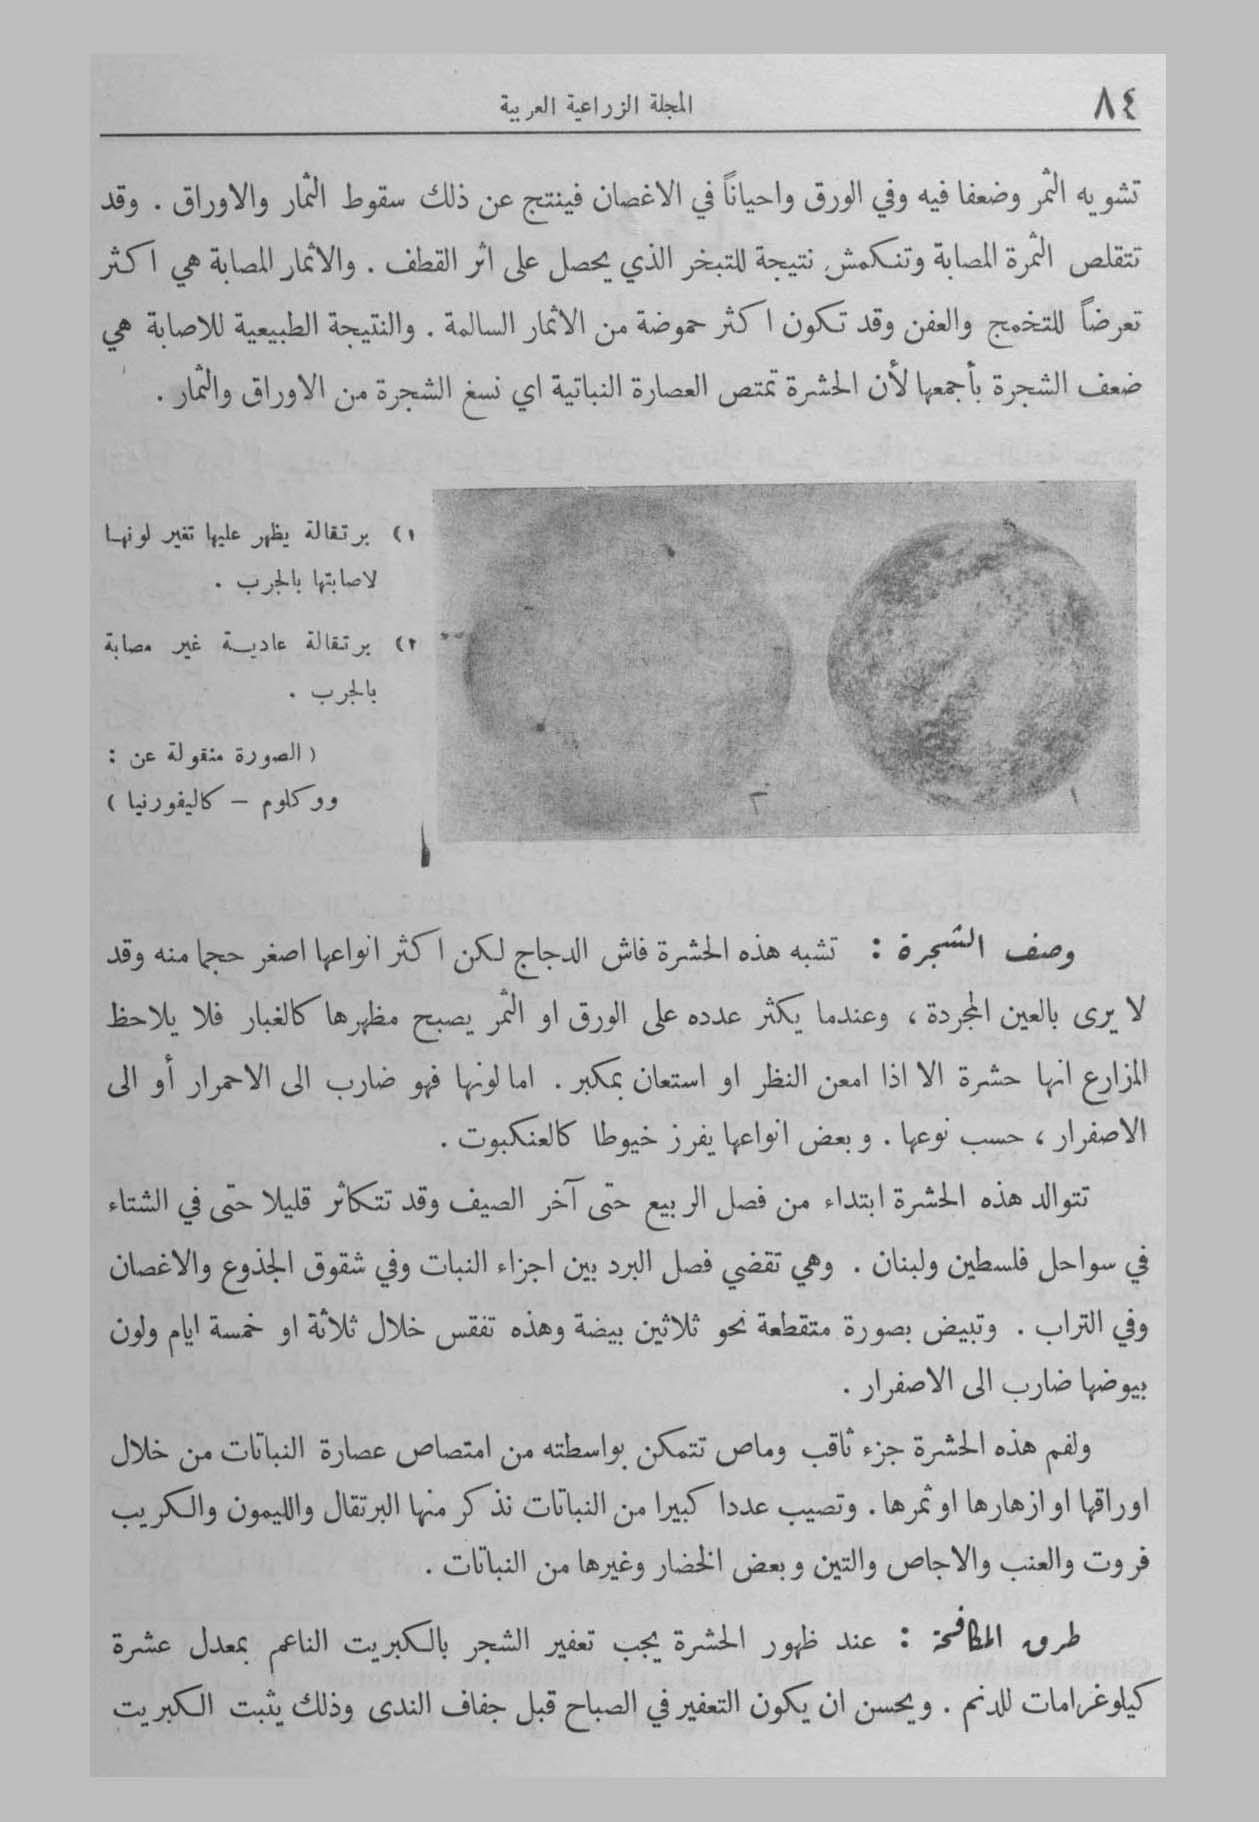 ٨٤
المجلة الزراعية العربية
تشويه الثمر وضعفا فيه وفي الورق واحياناً في الاغصان فينتج عن ذلك سقوط الثمار والاوراق . وقد
تتقلص الثمرة المصابة وتنكمش نتيجة للتبخر الذي يحصل على اثر القطف . والاثمار المصابة هي اكثر
تعرضاً للتخمج والعفن وقد تكون اكثر حموضة من الاثمار السالمة . والنتيجة الطبيعية للاصابة هي
ضعف الشجرة بأجمعها لأن الحشرة تمتص العصارة النباتية اي نسغ الشجرة من الاوراق والثمار .
١) برتقالة يظهر عليها تغير لونها
لاصابتها بالجرب .
٢) برتقالة عادية غير مصابة
بالجرب .
( الصورة منقولة عن :
ووكلوم – كاليفورنيا )
١
٢
وصف الشجرة : تشبه هذه الحشرة فاش الدجاج لكن اكثر انواعها اصغر حجما منه وقد
لا يرى بالعين المجردة ، وعندما يكثر عدده على الورق او الثمر يصبح مظهرها كالغبار فلا يلاحظ
المزارع انها حشرة الا اذا امعن النظر او استعان بمكبر . اما لونها فهو ضارب الى الاحمرار أو الى
الاصفرار ، حسب نوعها . وبعض انواعها يفرز خيوطا كالعنكبوت .
تتوالد هذه الحشرة ابتداء من فصل الربيع حتى آخر الصيف وقد تتكاثر قليلا حتى في الشتاء
في سواحل فلسطين ولبنان . وهي تقضي فصل البرد بين اجزاء النبات وفي شقوق الجذوع والاغصان
وفي التراب . وتبيض بصورة متقطعة نحو ثلاثين بيضة وهذه تفقس خلال ثلاثة او خمسة ايام ولون
بيوضها ضارب الى الاصفرار .
ولفم هذه الحشرة جزء ثاقب وماص تتمكن بواسطته من امتصاص عصارة النباتات من خلال
اوراقها او ازهارها او ثمرها . وتصيب عددا كبيرا من النباتات نذكر منها البرتقال والليمون والكريب
فروت والعنب والاجاص والتين وبعض الخضار وغيرها من النباتات .
طرق المكافحة : عند ظهور الحشرة يجب تعفير الشجر بالكبريت الناعم بمعدل عشرة
كيلوغرامات للدنم . ويحسن ان يكون التعفير في الصباح قبل جفاف الندى وذلك يثبت الكبريت